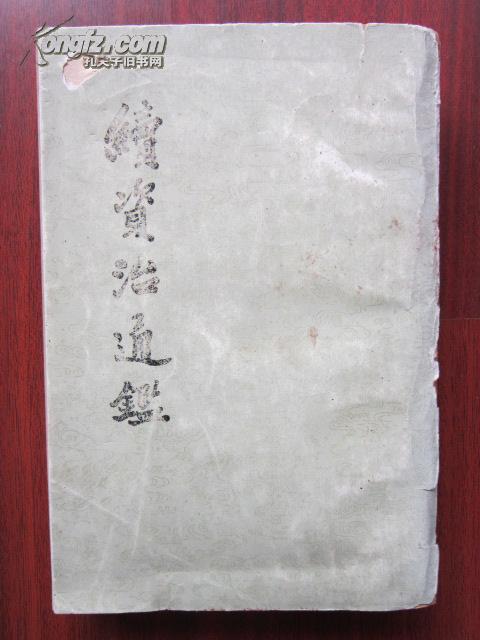 Kongfz.com
孔夫子旧书网
續資治通鑑